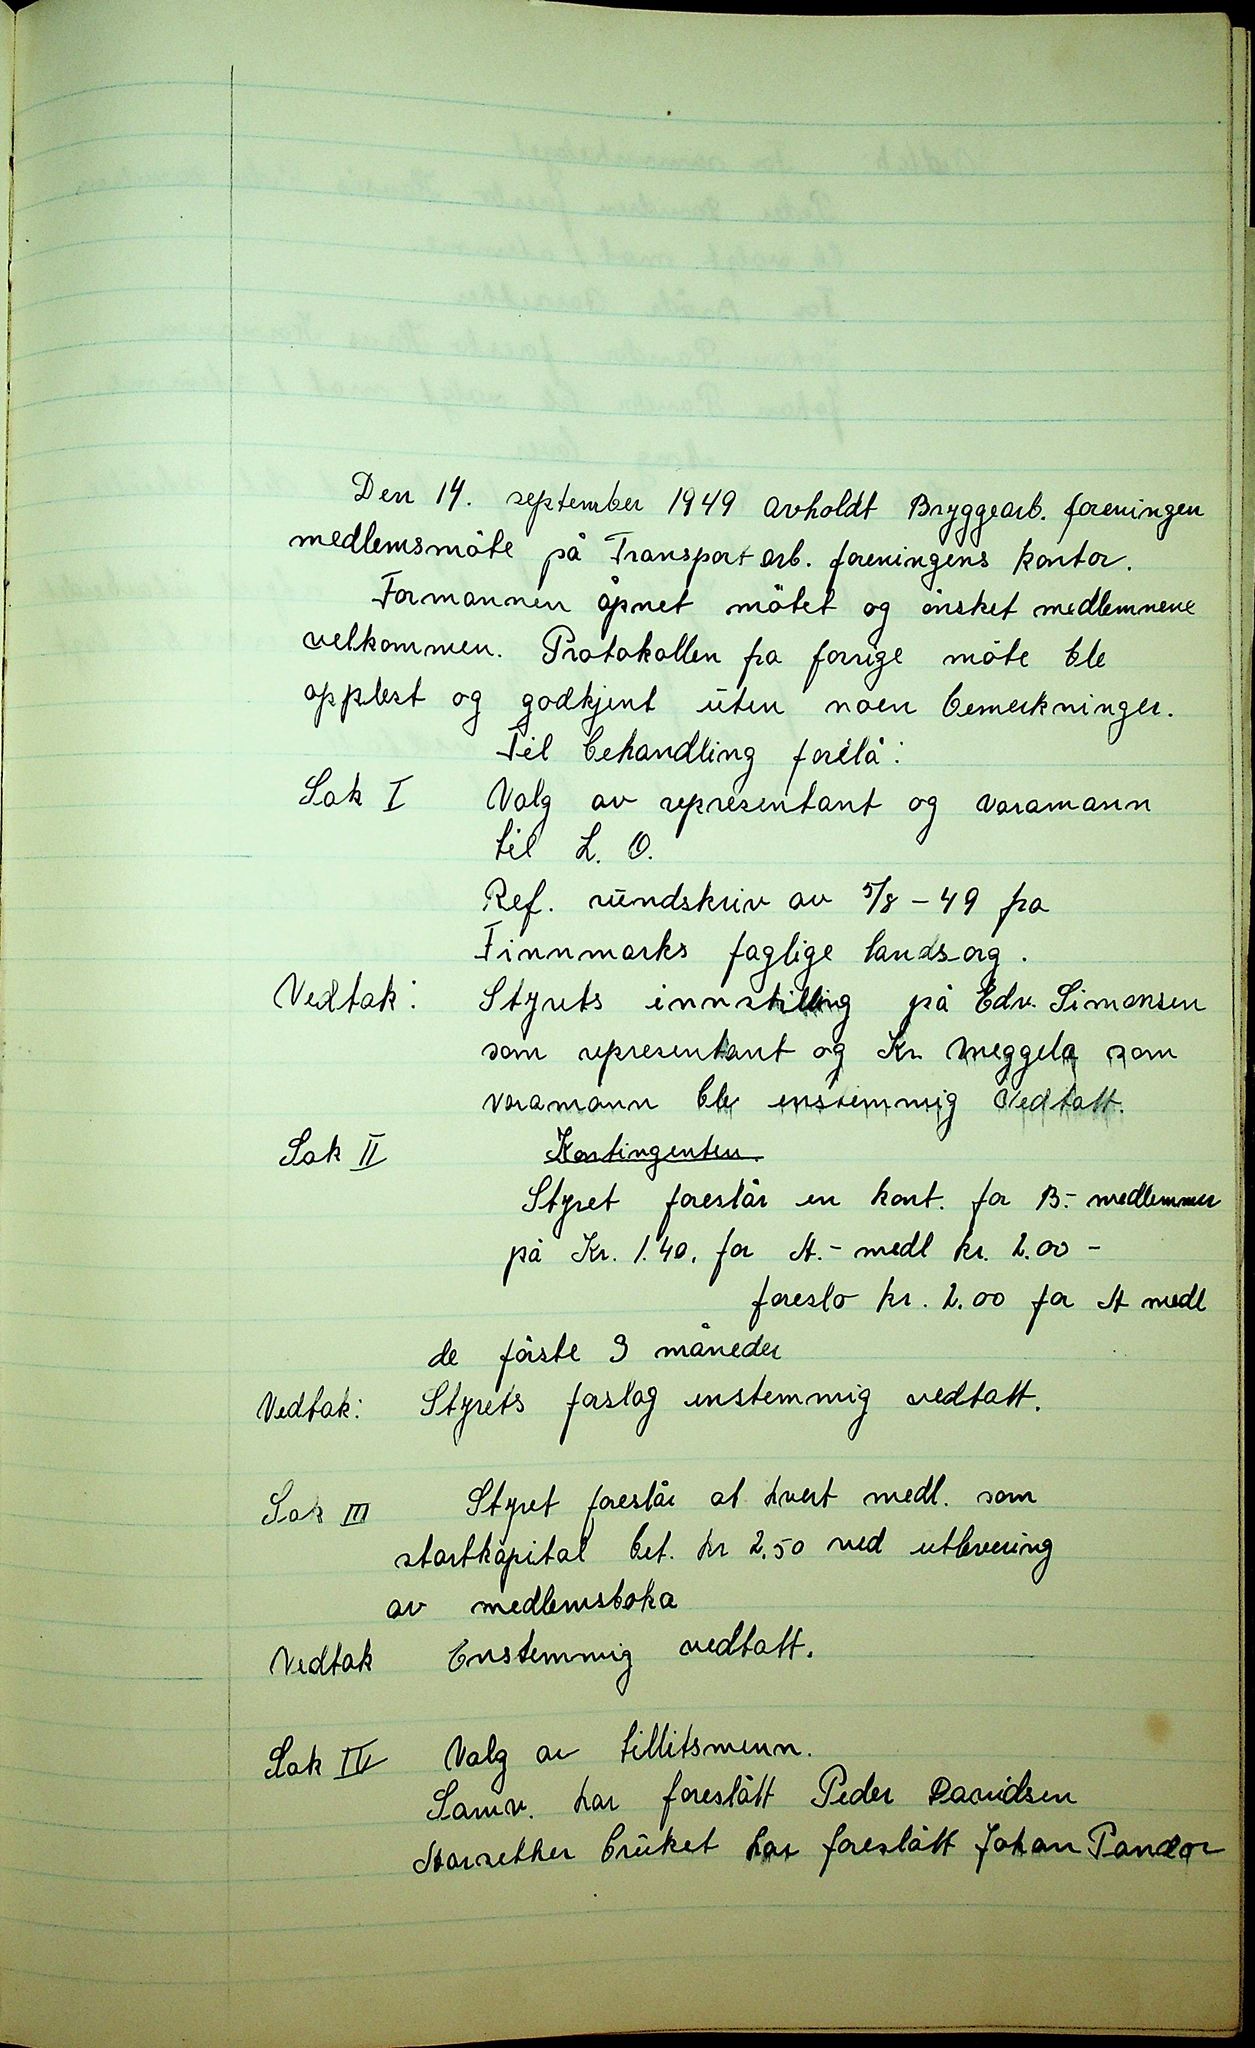 Den 14. september 1949 avholdt Bryggearb. foreningen
medlemsmöte på Transportarb. foreningens kontor.
Formannen åpnet mötet og önsket medlemnene
velkommen. Protokollen fra forrige möte ble
opplest og godkjent uten noen bemerkninger.
Til behandling forelå:
Sak I Valg av representant og varamann
til L. O.
Ref. rundskriv av 5/8 - 49 fra
Finnmarks faglige landsorg.
Vedtak: Styrets innstilling på Edv. Simonsen
som representant og Kr. Meggela som
varamann ble enstemmig vedtatt.
Sak II Kontingenten.
Styret foreslår en kont. for B.- medlemmer
på Kr. 1.40. for A.- medl kr. 2.00 -
foreslo kr. 2.00 for A medl
de förste 3 måneder
Vedtak: Styrets forslag enstemmig vedtatt.
Sak III Styret foreslår at hvert medl. som
startkapital bet. kr 2.50 ved utlevering
av medlemsboka
Vedtak Enstemmig vedtatt.
Sak IV Valg av tillitsmenn.
Samv. har foreslått Peder Davidsen
bruket har foreslått Johan Pandor